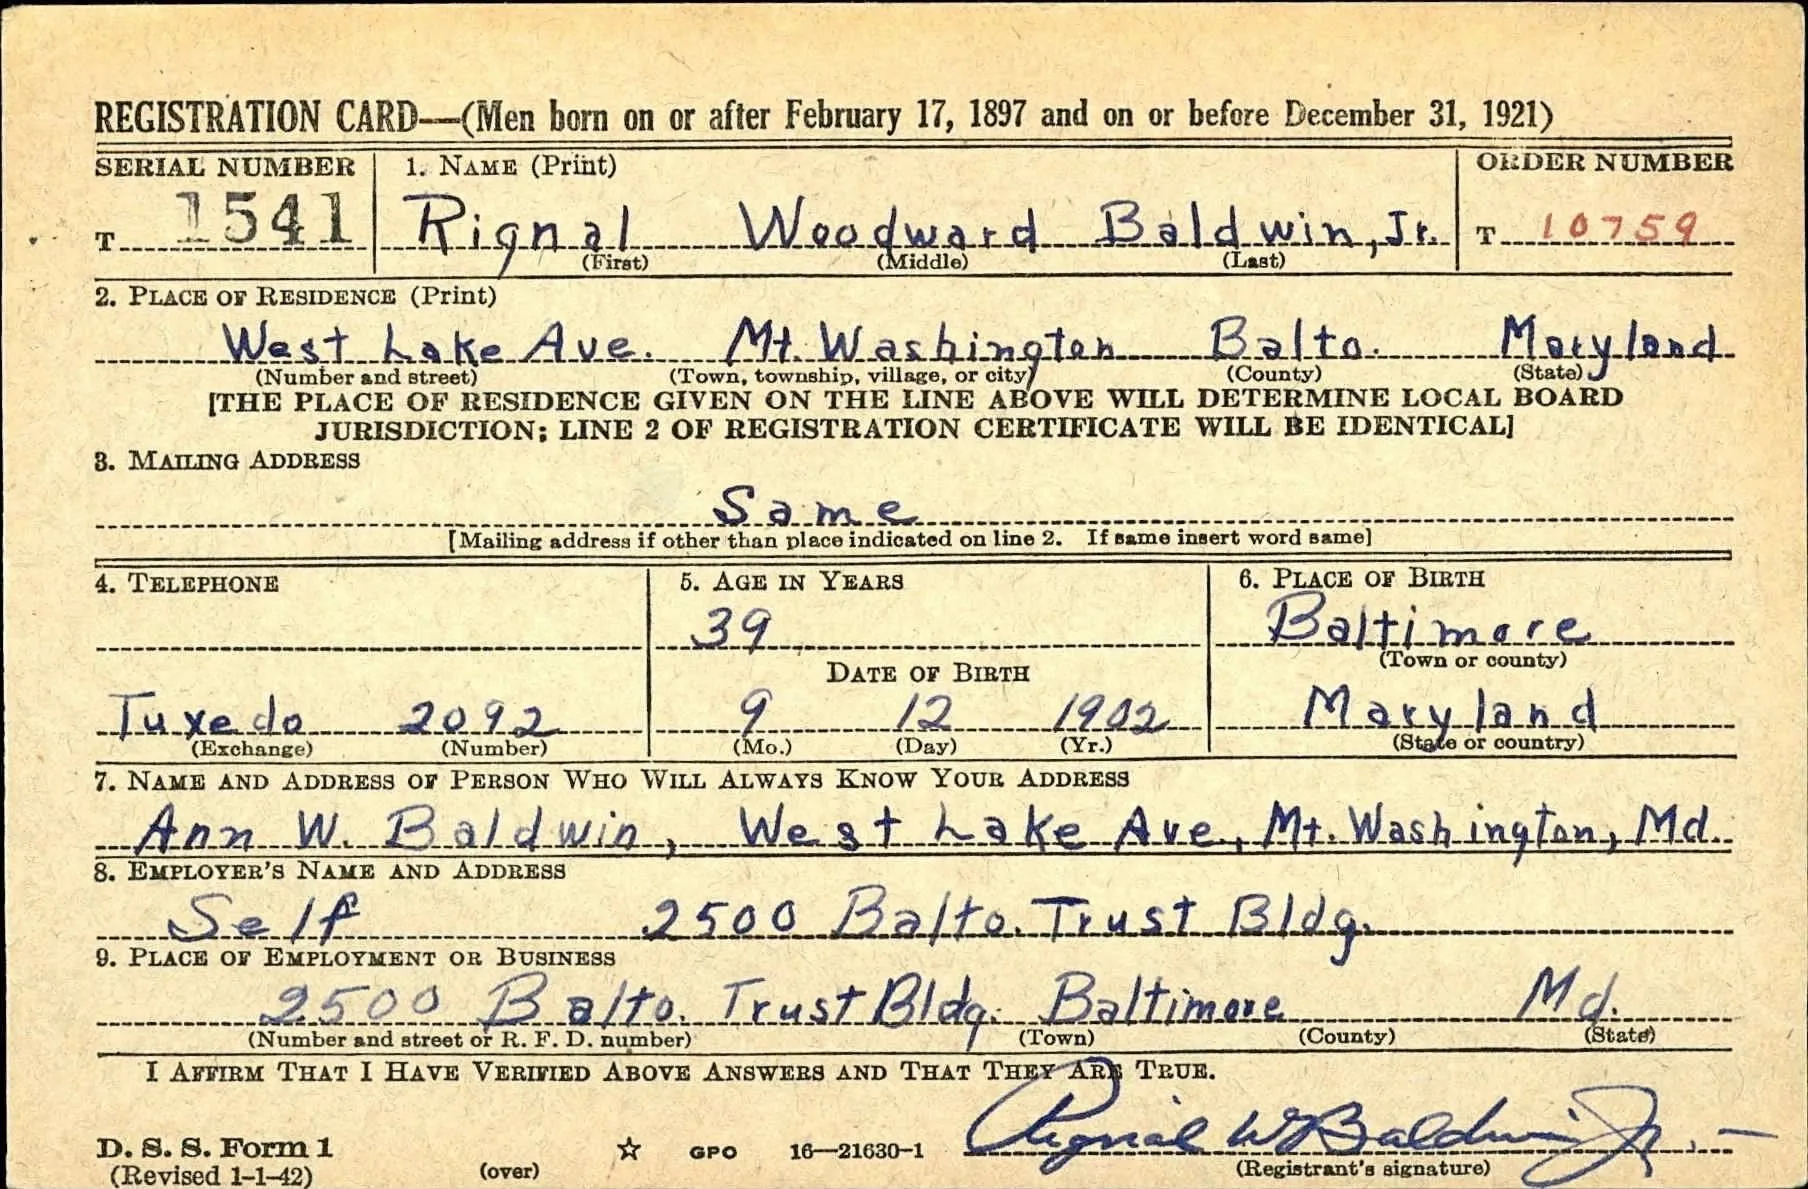 REGISTRATION CARD—(Men born on or after February 17, 1897 and on or before December 31, 1921)
SERIAL NUMBER 1. NAME (Print) ORDER NUMBER
T 1541 Rignal Woodward Baldwin, Jr. T 10759
(First) (Middle) (Last)
2. PLACE OF RESIDENCE (Print)
West Lake Ave. Mt. Washington Balto. Maryland
(Number and street) (Town, township, village, or city) (County) (State)
[THE PLACE OF RESIDENCE GIVEN ON THE LINE ABOVE WILL DETERMINE LOCAL BOARD
JURISDICTION; LINE 2 OF REGISTRATION CERTIFICATE WILL BE IDENTICAL]
3. MAILING ADDRESS
Same
[Mailing address if other than place indicated on line 2. If same insert word same]
4. TELEPHONE 5. AGE IN YEARS 6. PLACE OF BIRTH
39 Baltimore
(Town or county)
DATE OF BIRTH
Tuxedo 2092 9 12 1902 Maryland
(Exchange) (Number) (Mo.) (Day) (Yr.) (State or country)
7. NAME AND ADDRESS OF PERSON WHO WILL ALWAYS KNOW YOUR ADDRESS
Ann W. Baldwin, West Lake Ave., Mt. Washington, Md.
8. EMPLOYER'S NAME AND ADDRESS
Self 2500 Balto. Trust Bldg.
9. PLACE OF EMPLOYMENT OR BUSINESS
2500 Balto. Trust Bldg. Baltimore Md.
(Number and street or R. F. D. number) (Town) (County) (State)
I AFFIRM THAT I HAVE VERIFIED ABOVE ANSWERS AND THAT THEY ARE TRUE.
Rignal W Baldwin Jr.
D. S. S. Form 1 ☆ GPO 16—21630-1
(Revised 1-1-42) (over) (Registrant's signature)